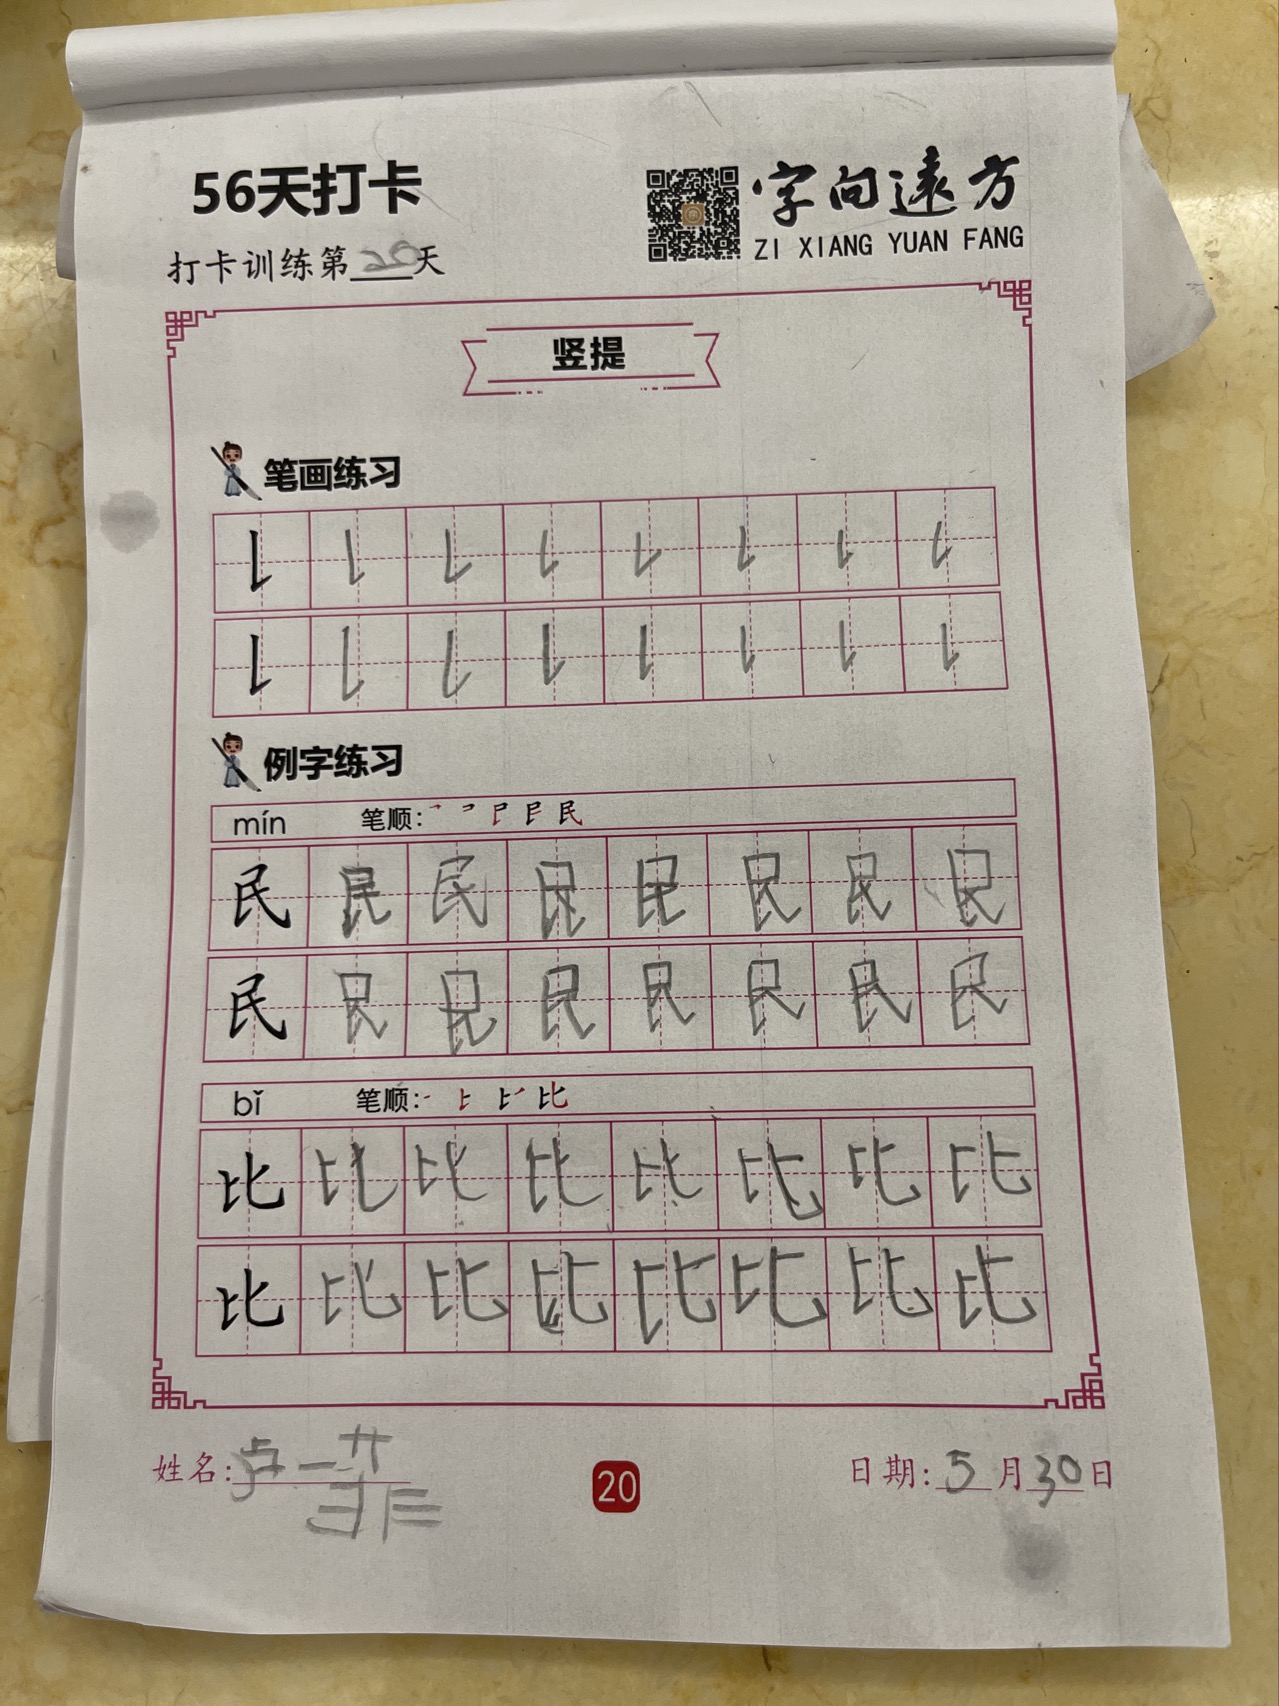 56天打卡
字向远方
ZI XIANG YUAN FANG
打卡训练第20天
竖提
笔画练习
例字练习
mín 笔顺:
民 民 民 民 民 民 民 民
民 民 民 民 民 民 民 民
bǐ 笔顺:
比 比 比 比 比 比 比 比
比 比 比 比 比 比 比 比
姓名:卢一菲
20
日期:5月30日